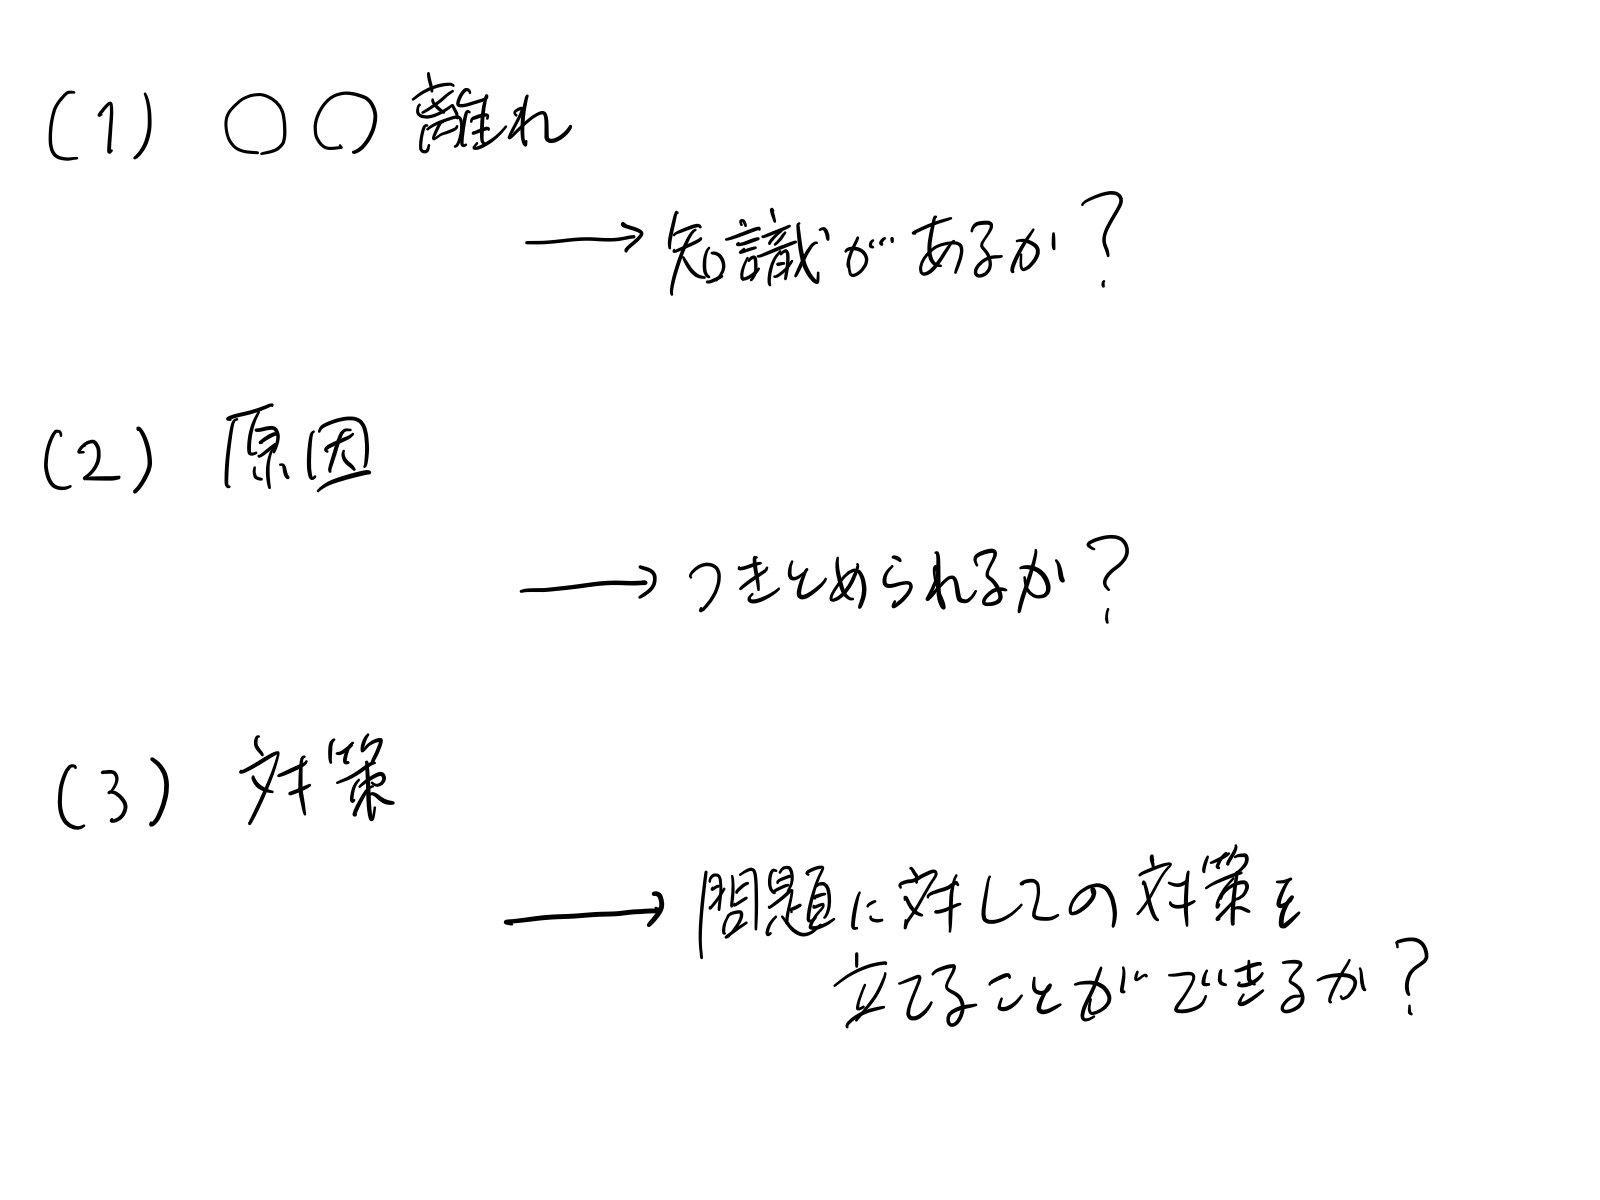 (1) ○○離れ
→ 知識があるか?
(2) 原因
→ つきとめられるか?
(3) 対策
→ 問題に対しての対策を
立てることができるか?